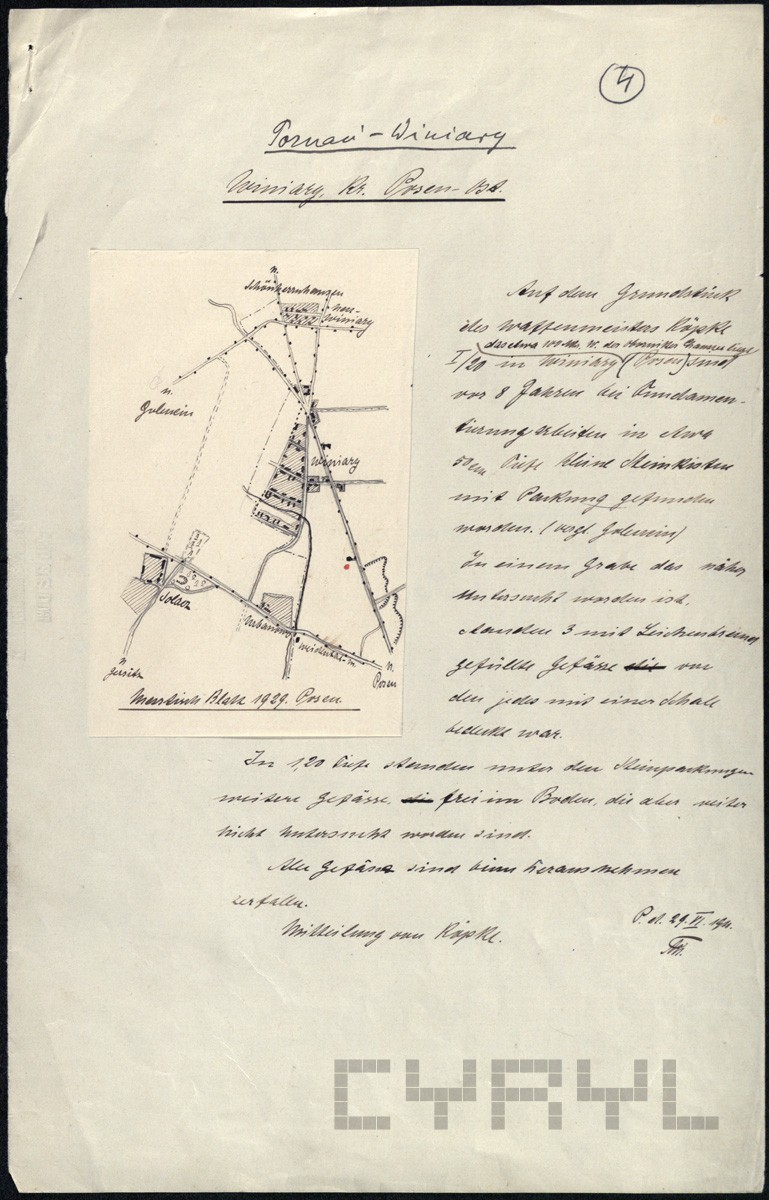 4
Poznań – Winiary
Winiary, Kr. Posen-Ost.
n.
Schönherrnhausen
Neu-
Winiary
n.
Golencin
Winiary
Solacz
Urbanowo
n.
Jersitz
n.
Posen
Messtisch Blatt 1929. Posen.
Auf dem Grundstück
des Waffenmeisters Köpke
das etwa 100 Mtr. W. des
I/20 in Winiary (Posen) sind
vor 8 Jahren bei Fundamen-
tierungarbeiten in etwa
50 cm Tiefe kleine Steinkisten
mit Packung gefunden
worden. (vergl. Golencin)
In einem Grabe das näher
untersucht worden ist,
standen 3 mit Leichenbrand
gefüllte Gefässe die von
den jedes mit einer Schale
bedeckt war.
In 1,20 Tiefe standen unter den Steinpackungen
weitere Gefässe, die frei im Boden, die aber weiter
nicht untersucht worden sind.
Alle Gefässe sind beim herausnehmen
zerfallen.
Mitteilung von Köpke.
P. d. 29. VI.